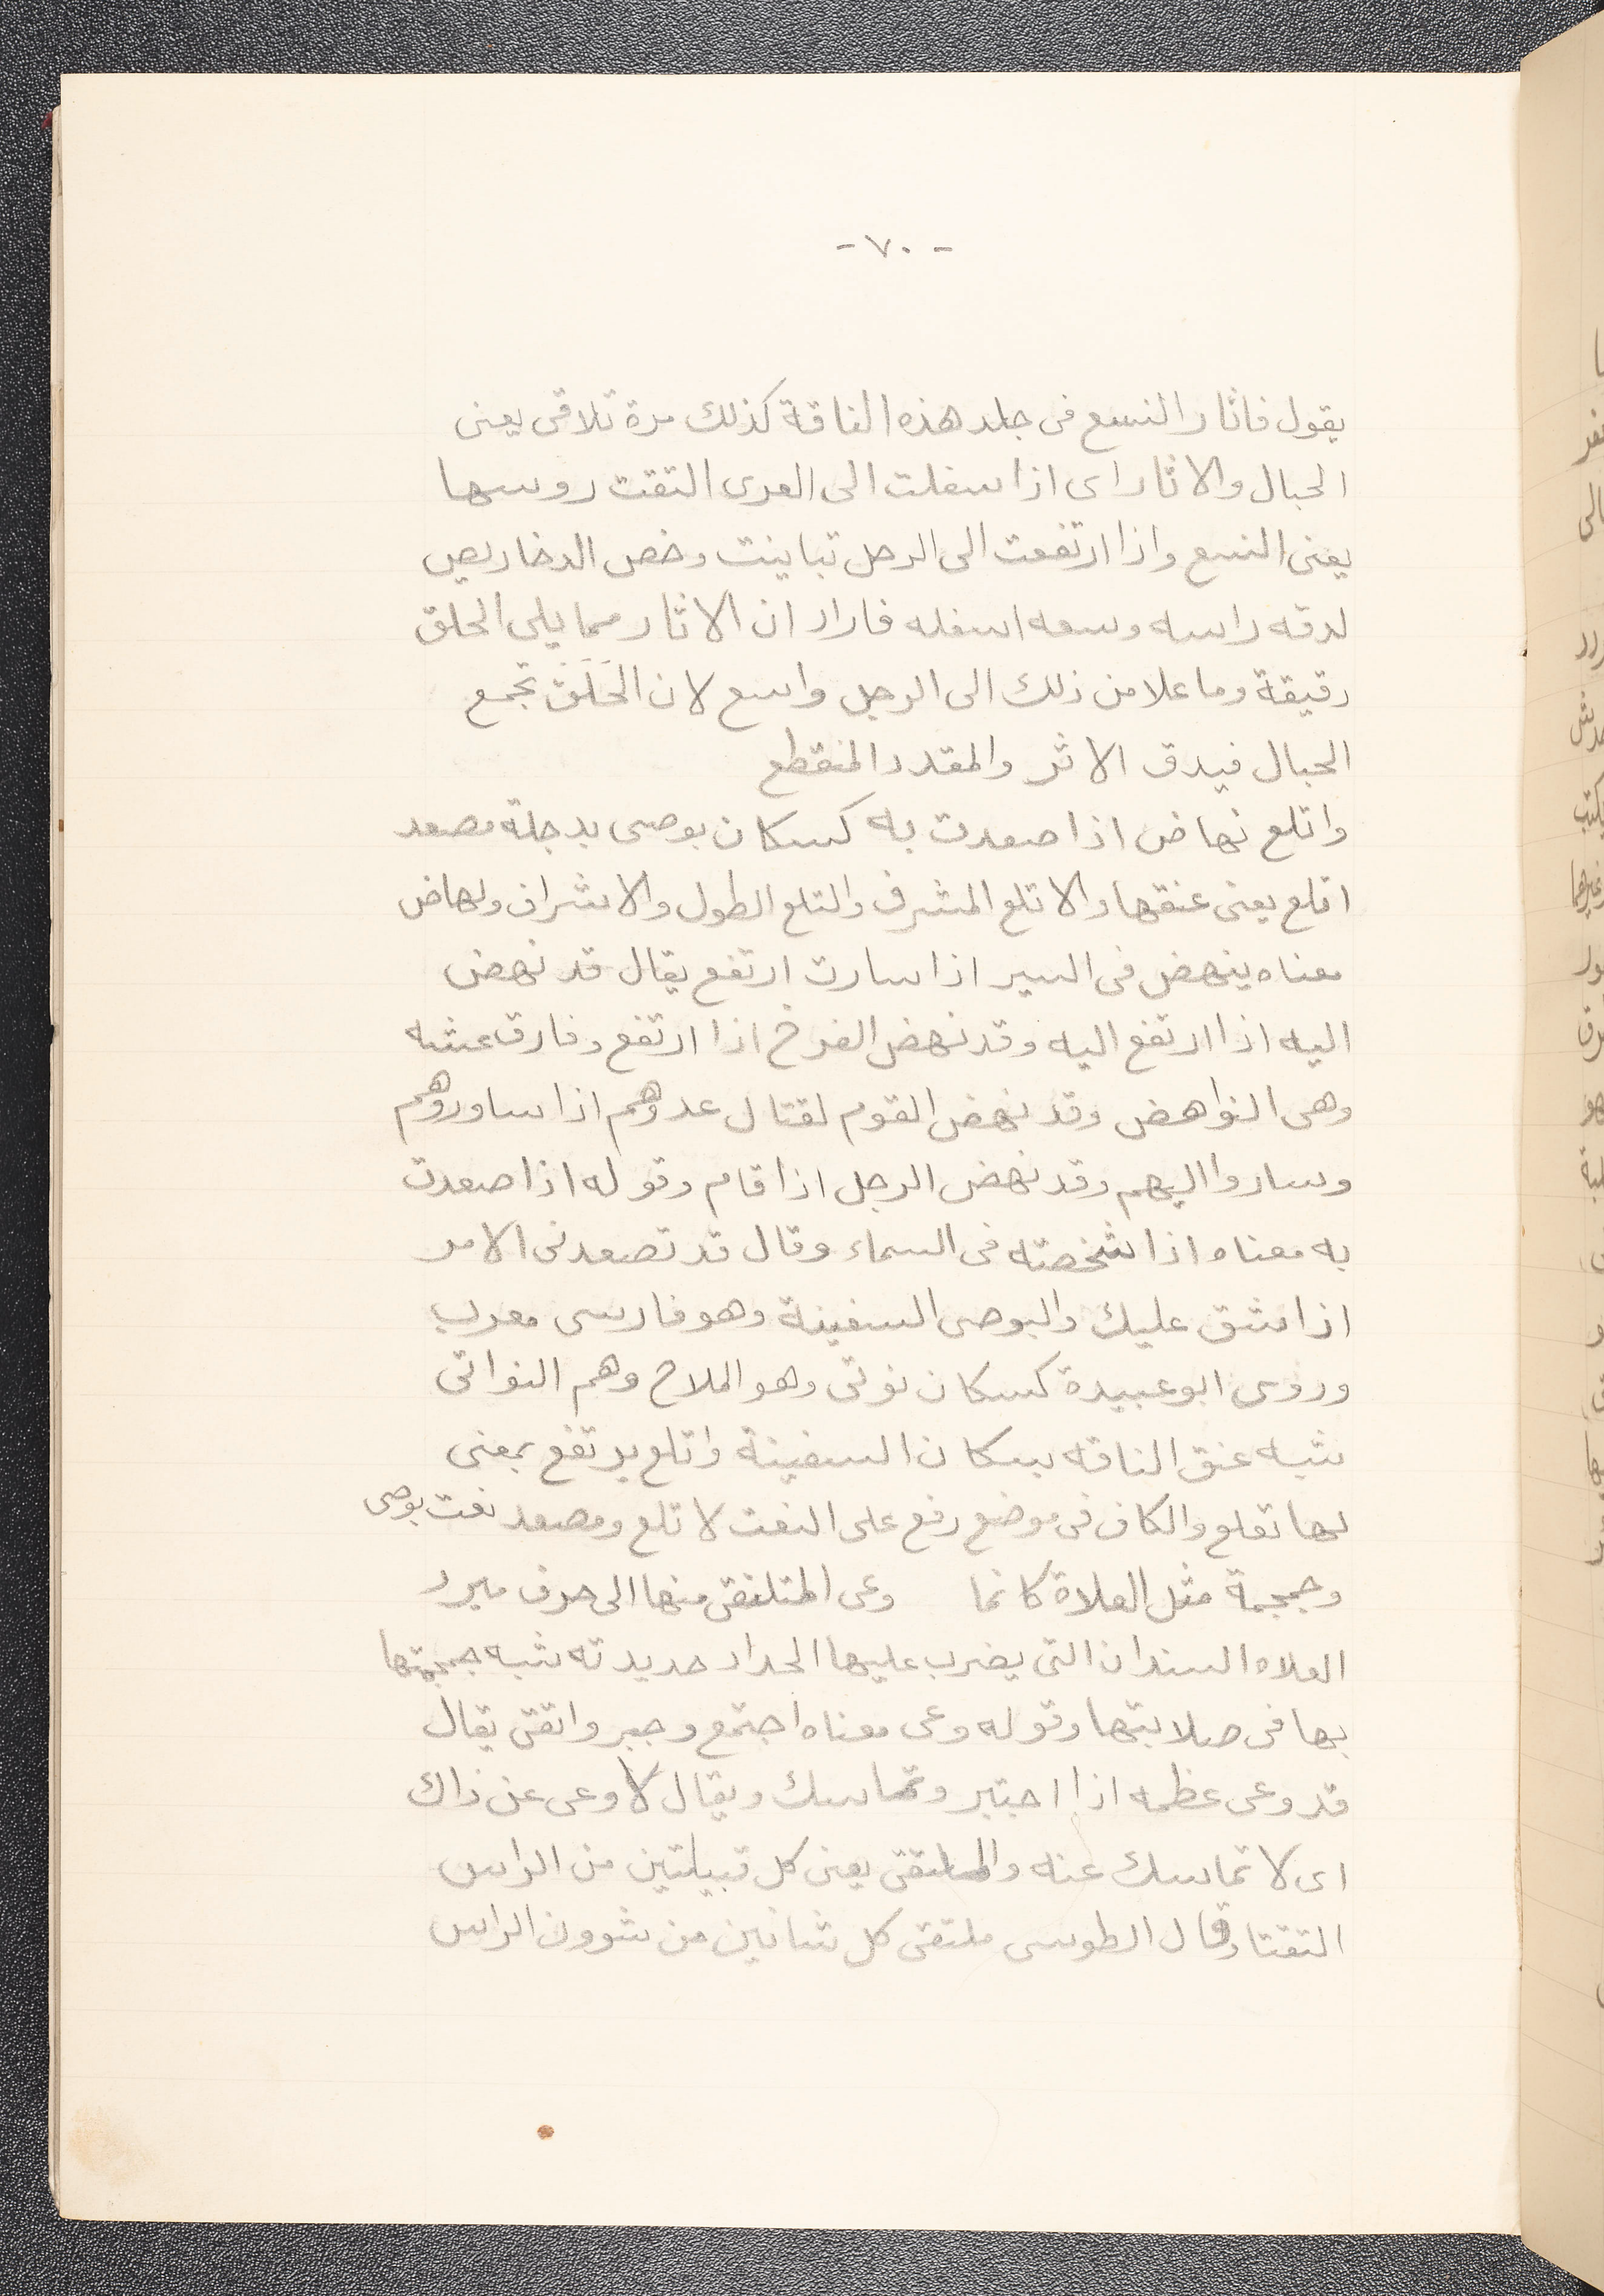 - ٧٠ -
يقول فاثار النسع فى جلد هذه الناقة كذلك مرة تلاقى يعنى
الحبال والاثار اى اذا سفلت الى العرى التقت روسها
يعنى النسع واذا ارتفعت الى الرحل تباينت وخص الدخاريص
لدقه راسه وسعه اسفله فاراد ان الاثار مما يلى الحلق
رقيقة وما علا من ذلك الى الرحل واسع لان الحَلَقَ تجمع
الحبال فيدق الاثر والمقدد المنقطع
واتلع نهاض اذا صعدت به كسكان بوصى بدجلة مصعد
اتلع يعنى عنقها والاتلع المشرف والتلع الطول والاشراف ونهاض
معناه ينهض فى السير اذا سارت ارتفع يقال قد نهض
اليه اذا ارتفع اليه وقد نهض الفرخ اذا ارتفع وفارق عشه
وهى النواهض وقد نهض القوم لقتال عدوهم اذا ساوروهم
وساروا اليهم وقد نهض الرجل اذا قام وقوله اذا صعدت
به معناه اذا شخصته فى السماء وقال قد تصعدنى الامر
اذا شق عليك والبوصى السفينة وهو فارسى معرب
وروى ابو عبيدة كسكان نوتى وهو الملاح وهم النواتى
شبه عنق الناقه بسكان السفينة واتلع يرتفع بمعنى
لها تقلع والكاف فى موضع رفع على النعت لاتلع ومصعد نعت بوصى
وجمجمة مثل العلاة كانما وعى الملتقى منها الى حرف مبرد
العلاه السندان التى يضرب عليها الحداد حديدته شبه جمجمتها
بها فى صلابتها وقوله وعى معناه اجتمع وجبر واتقى يقال
قد وعى عظمه اذا اجتبر وتماسك ويقال لا وعى عن ذاك
اى لا تماسك عنه والملتقى يعنى كل قبيلتين من الراس
التقتا وقال الطوسى ملتقى كل شانين من شوون الراس